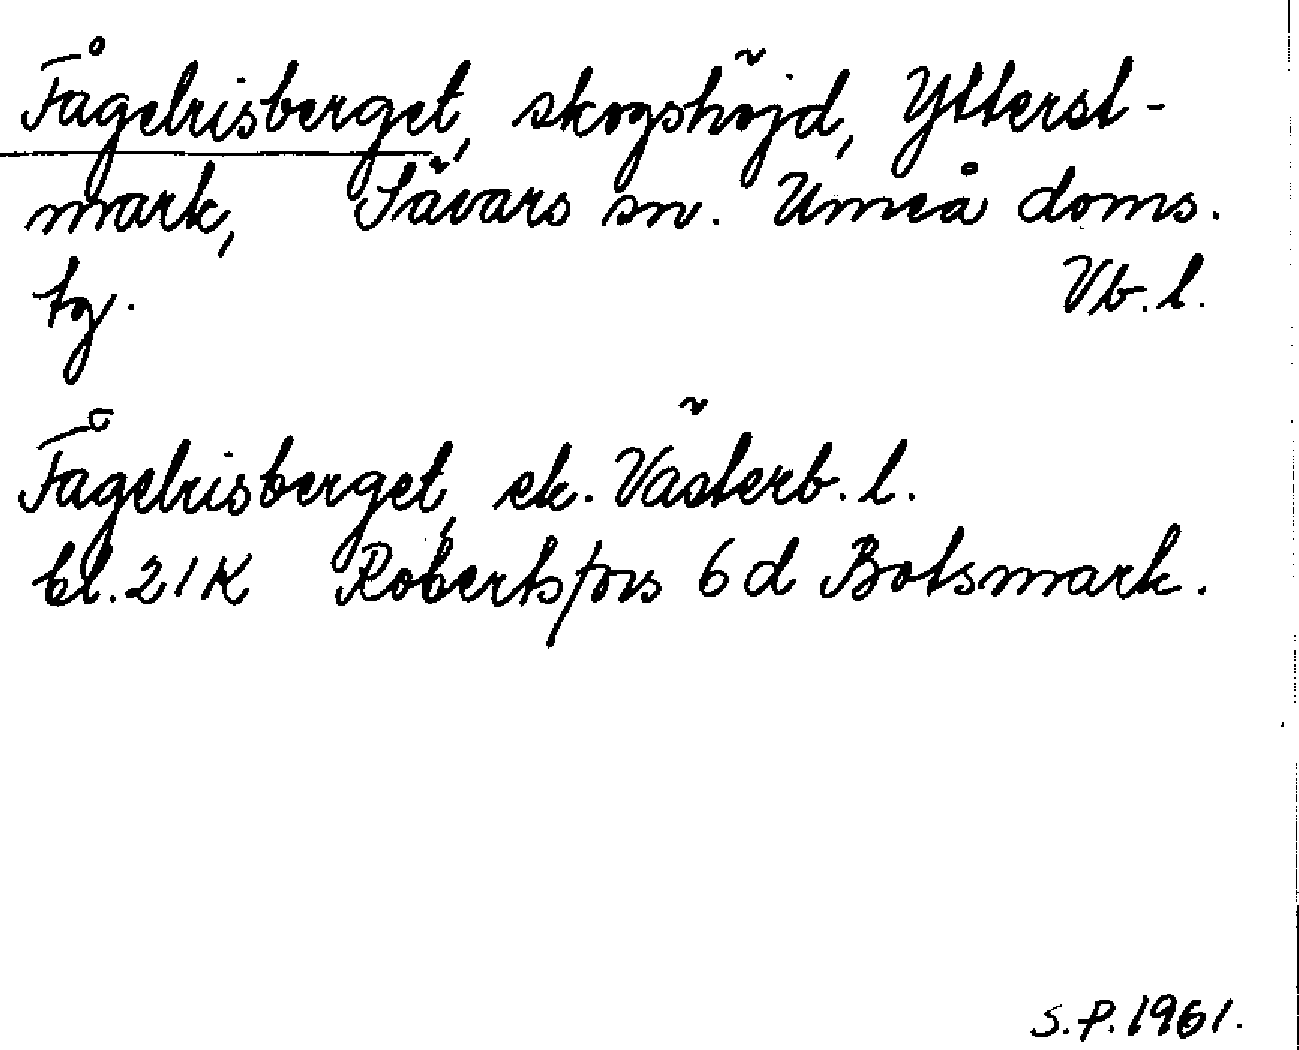 Fågelrisberget, skogshöjd, Ytterst-
mark, Sävars sn. Umeå doms.
tg. Vb. l.
Fågelrisberget, ek. Västerb. l.
bl. 21K Robertsfors 6d Botsmark.
S.P. 1961.